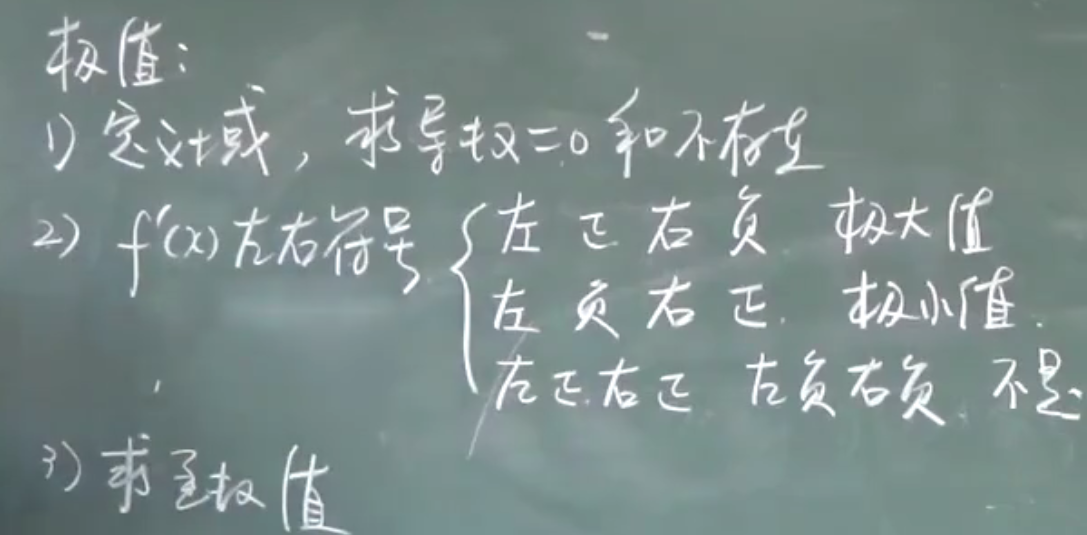 极值:
1) 定义域, 求导数=0和不存在
2) f'(x)左右符号 { 左正右负 极大值
左负右正. 极小值.
左正右正 左负右负 不是
3) 求极值